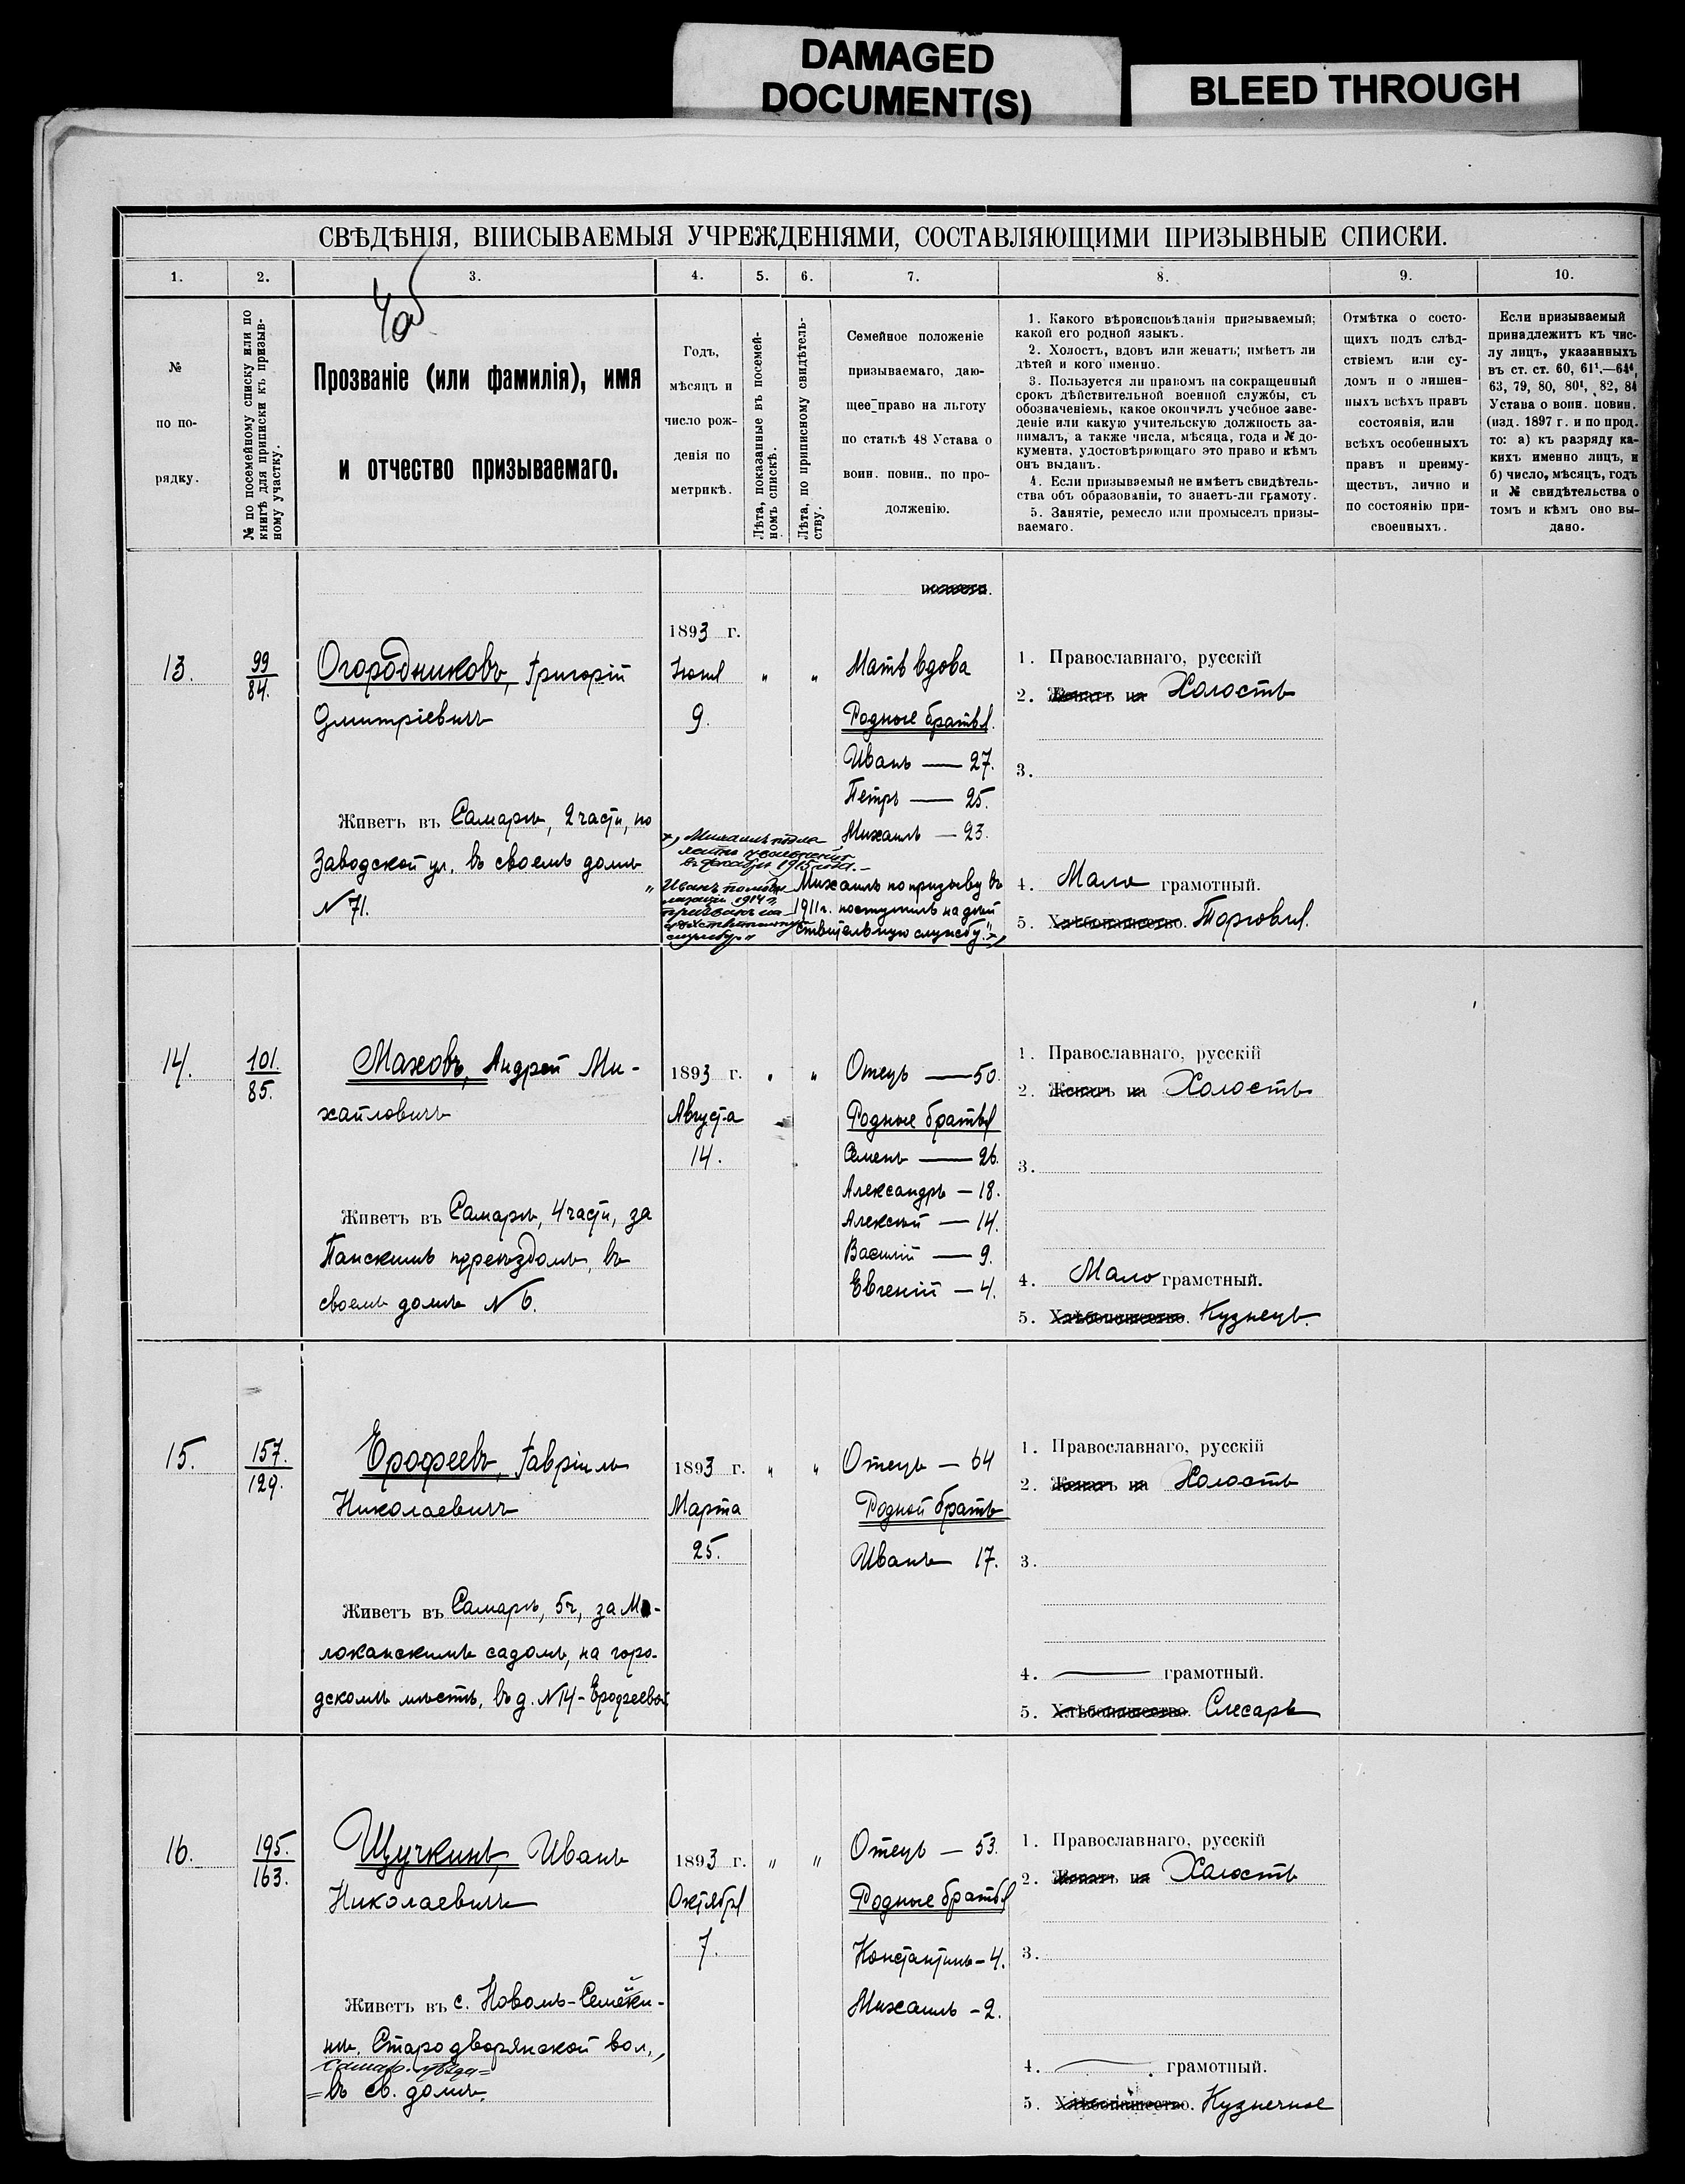 DAMAGED
DOCUMENT(S)
BLEED THROUGH
СВѢДѢНІЯ, ВПИСЫВАЕМЫЯ УЧРЕЖДЕНІЯМИ, СОСТАВЛЯЮЩИМИ ПРИЗЫВНЫЕ СПИСКИ.
1. 2. 3. 4. 5. 6. 7. 8. 9. 10.
№
по по-
рядку.
№ по посемейному списку или по
книгѣ для приписки къ призыв-
ному участку.
Прозваніе (или фамилія), имя
и отчество призываемаго.
Годъ,
мѣсяцъ и
число рож-
денія по
метрикѣ.
Лѣта, показанные въ посемей-
номъ спискѣ.
Лѣта, по приписному свидѣтель-
ству.
Семейное положеніе
призываемаго, даю-
щее право на льготу
по статьѣ 48 Устава о
воин. повин.. по про-
долженію.
1. Какого вѣроисповѣданія призываемый;
какой его родной языкъ.
2. Холостъ, вдовъ или женатъ; имѣетъ ли
дѣтей и кого именно.
3. Пользуется ли правомъ на сокращенный
срокъ дѣйствительной военной службы, съ
обозначеніемъ, какое окончилъ учебное заве-
деніе или какую учительскую должность за-
нималъ, а также числа, мѣсяца, года и № до-
кумента, удостовѣряющаго это право и кѣмъ
онъ выданъ.
4. Если призываемый не имѣетъ свидѣтель-
ства объ образованіи, то знаетъ-ли грамоту.
5. Занятіе, ремесло или промыселъ призы-
ваемаго.
Отмѣтка о состо-
щихъ подъ слѣд-
ствіемъ или су-
домъ и о лишен-
ныхъ всѣхъ правъ
состоянія, или
всѣхъ особенныхъ
правъ и преиму-
ществъ, лично и
по состоянію при-
своенныхъ.
Если призываемый
принадлежитъ къ чис-
лу лицъ, указанныхъ
въ ст. ст. 60, 61¹.—64⁴,
63, 79, 80, 80¹, 82, 84
Устава о воин. повин.
(изд. 1897 г. и по прод.
то: а) къ разряду ка-
кихъ именно лицъ, и
б) число, мѣсяцъ, годъ
и № свидѣтельства о
томъ и кѣмъ оно вы-
дано.
13.
99
84.
Огородниковъ, Григорій
Дмитріевичъ
Живетъ въ Самарѣ, 2 части, по
Заводской ул. въ своемъ домѣ
№ 71.
1893 г.
Іюня
9.
" "
Мать вдова
Родные братья.
Иванъ — 27.
Петръ — 25.
Михаилъ — 23.
Михаилъ по призыву въ
1911 г. поступилъ на дѣй
ствительную службу."
1. Православнаго, русскій
2. Женатъ на Холостъ
3.
4. Мало грамотный.
5. Хлѣбопашество. Торговля.
14.
101.
85.
Маховъ, Андрей Ми-
хайловичъ
Живетъ въ Самарѣ, 4 части, за
Панскимъ переѣздомъ, въ
своемъ домѣ № 6.
1893 г.
Августа
14.
" "
Отецъ — 50.
Родные братья
Семенъ — 26.
Александръ — 18.
Алексѣй — 14.
Василій — 9.
Евгеній — 4.
1. Православнаго, русскій
2. Женатъ на Холостъ
3.
4. Мало грамотный.
5. Хлѣбопашество. Кузнецъ.
15.
157.
129.
Ерофеевъ, Гавріилъ
Николаевичъ
Живетъ въ Самарѣ, 5 ч, за Мо-
локанскимъ садомъ, на горо-
дскомъ мѣстѣ, въ д. № 14 - Ерофеевой
1893 г.
Марта
25.
" "
Отецъ — 64
Родной братъ
Иванъ 17.
1. Православнаго, русскій
2. Женатъ на Холостъ
3.
4. — грамотный.
5. Хлѣбопашество. Слесарь
16.
195.
163.
Щучкинъ, Иванъ
Николаевичъ
Живетъ въ с. Новомъ-Семейки-
нѣ, Стародворянской вол.,
Самар. уѣзда=
=въ св. домѣ.
1893 г.
Октября
7.
" "
Отецъ — 53.
Родные братья
Константинъ - 4.
Михаилъ - 2.
1. Православнаго, русскій
2. Женатъ на Холостъ
3.
4. — грамотный.
5. Хлѣбопашество. Кузнечное